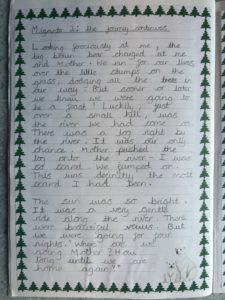 the journey continues.
Looking ferociously at me, the
big brown bear charged at me
and Mother. We ran for our lives,
over the little stumps on the
grass, dodging all the trees in
our way. But sooner or later
we knew we were going to
be a feast! Luckily, just
over a small hill, was
the river we had come on.
There was a log right by
the river. It was our only
chance. Mother pushed the
log onto the river. I was
so scared. We jumped on.
This was definitly, the most
scared I had been.
The sun was so bright.
It was a very gentle
ride along the river. There
were beautiful views. But
we were going for four
nights. "Where are we
going Mother? How
long until we are
home again?"